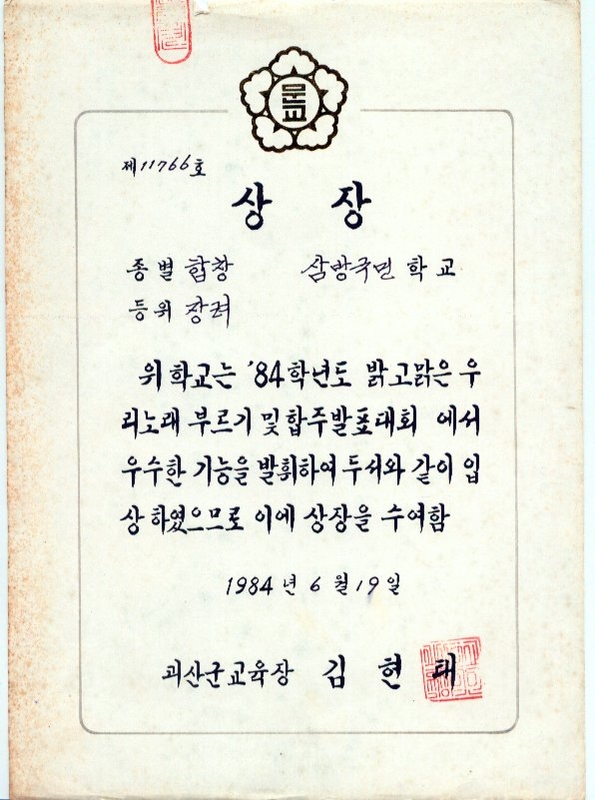 문교
제11766호
상 장
종별 합창 삼방국민 학교
등위 장려
위 학교는 '84학년도 밝고맑은 우
리노래 부르기 및 합주발표대회 에서
우수한 기능을 발휘하여 두서와 같이 입
상 하였으므로 이에 상장을 수여함
1984 년 6 월 19 일
괴산군교육장 김 현 태